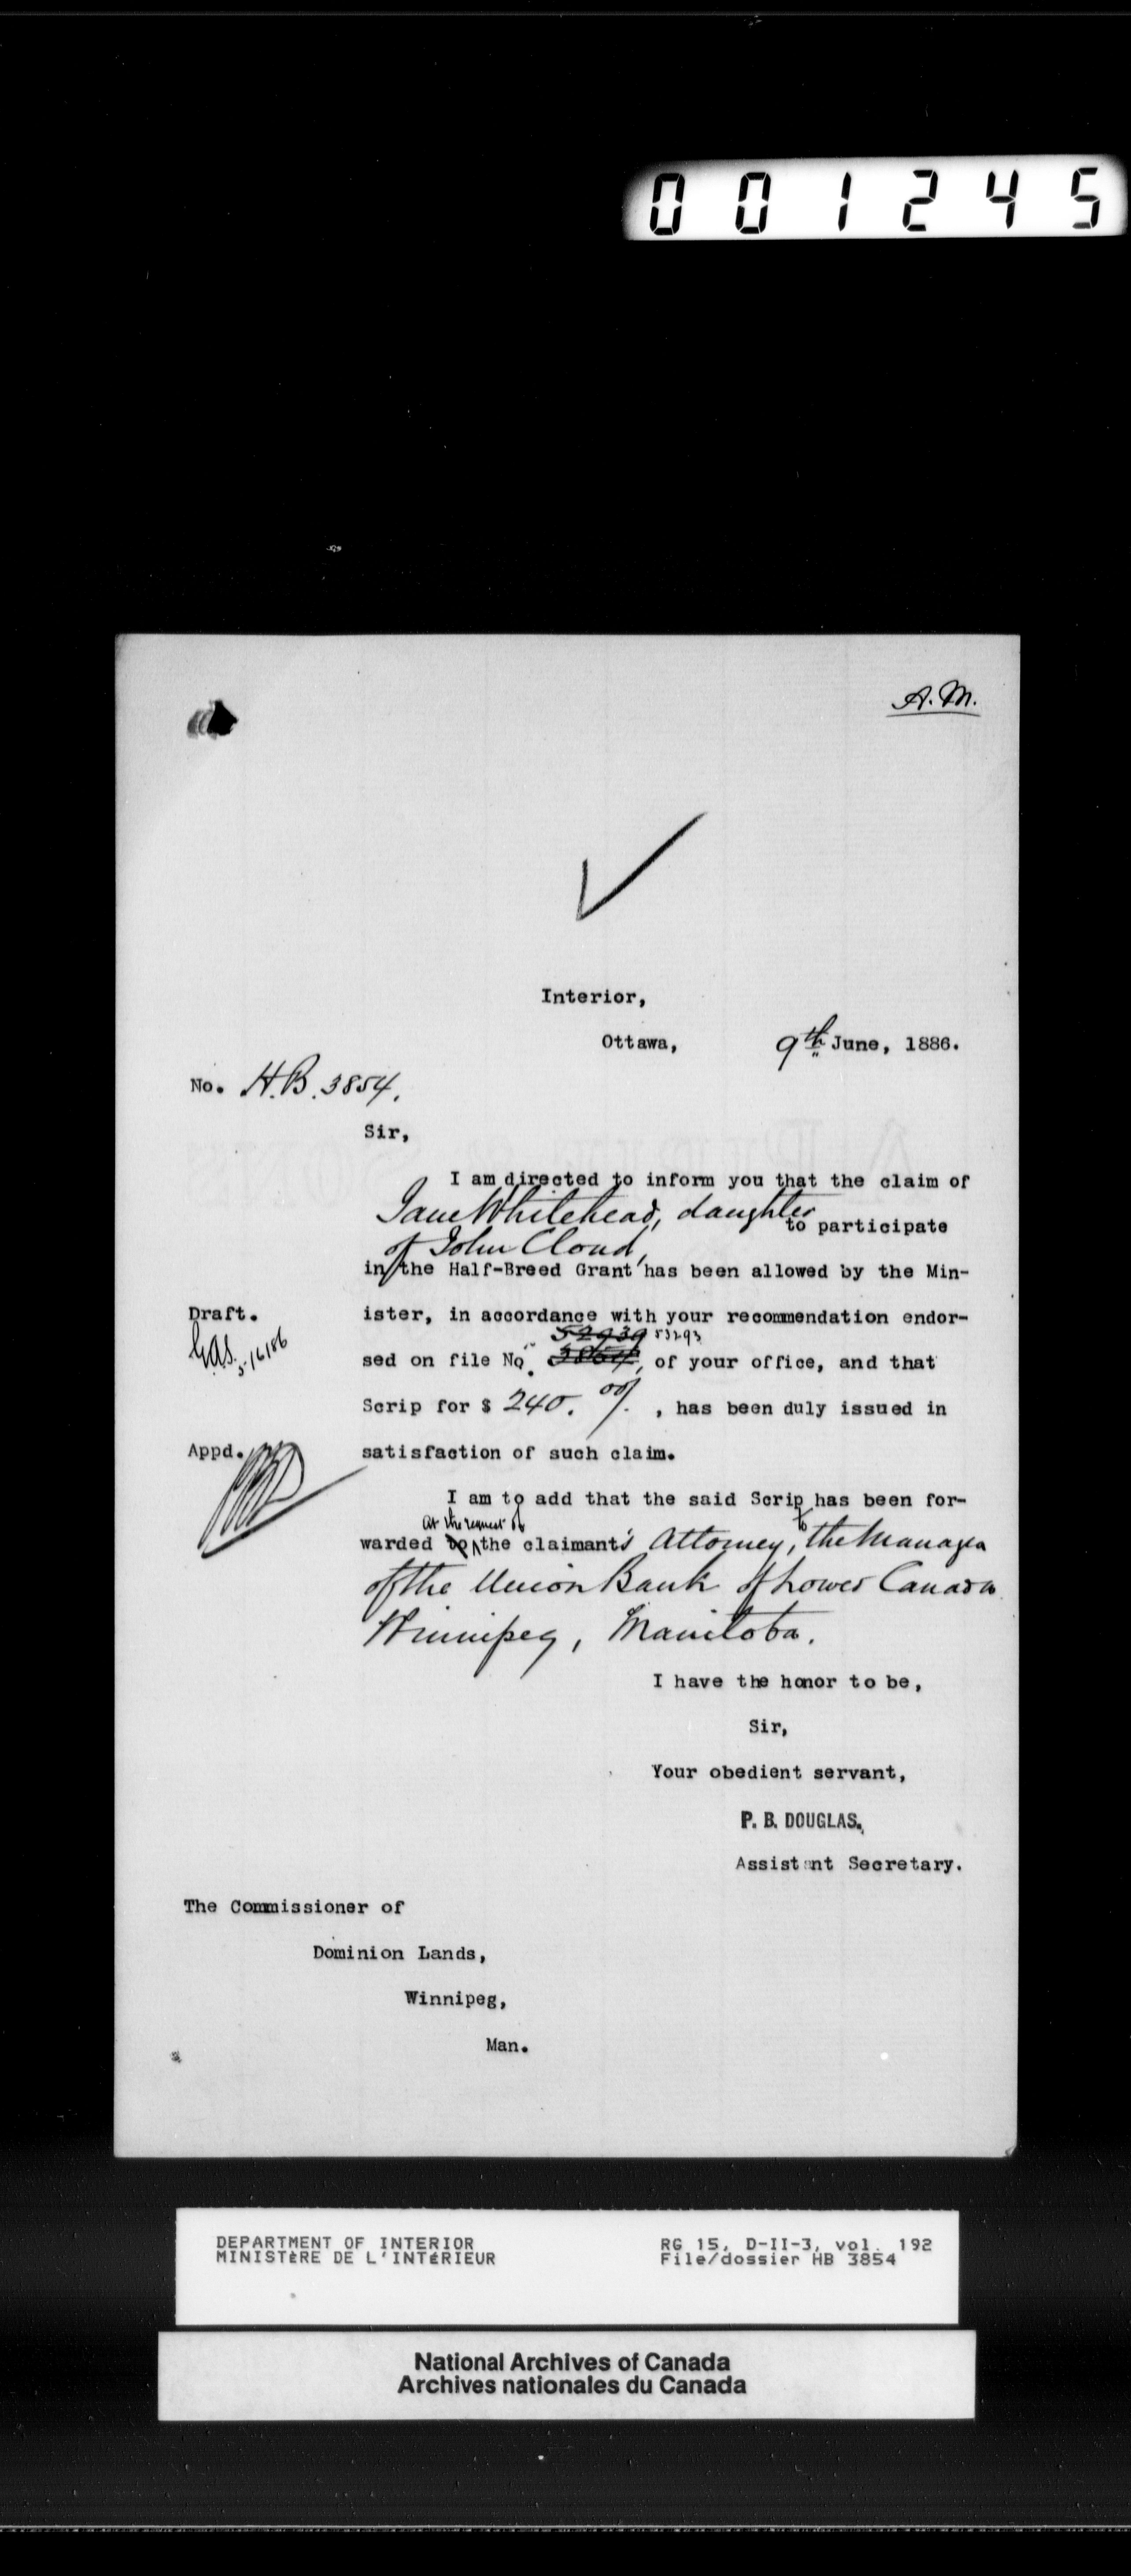 001245
A. M.
Interior,
Ottawa, 9th June, 1886.
No. H.B. 3854.
Sir,
I am directed to inform you that the claim of
Jane Whitehead, daughter
to participate
of John Cloud,
in the Half-Breed Grant has been allowed by the Min-
Draft. ister, in accordance with your recommendation endor-
52939 53293
sed on file No. 3854, of your office, and that
Scrip for $ 240. 00/. , has been duly issued in
Appd. satisfaction of such claim.
I am to add that the said Scrip has been for-
at the request of to
warded to the claimant's Attorney, the Manager
of the Union Bank of Lower Canada
Winnipeg, Manitoba.
I have the honor to be,
Sir,
Your obedient servant,
P. B. DOUGLAS.
Assistant Secretary.
The Commissioner of
Dominion Lands,
Winnipeg,
Man.
DEPARTMENT OF INTERIOR RG 15, D-II-3, vol. 192
MINISTÈRE DE L'INTÉRIEUR File/dossier HB 3854
National Archives of Canada
Archives nationales du Canada